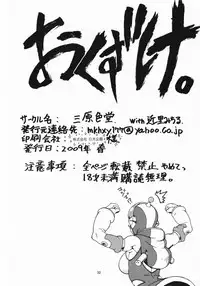 おくずけ。
サークル名： 三原色堂 with 近里みちる
発行元連絡先： mkhxy177@yahoo.co.jp
印刷会社： 様
発行日： 2009年 春
注意事項： 全ページ転載禁止
18才未満購読無理。